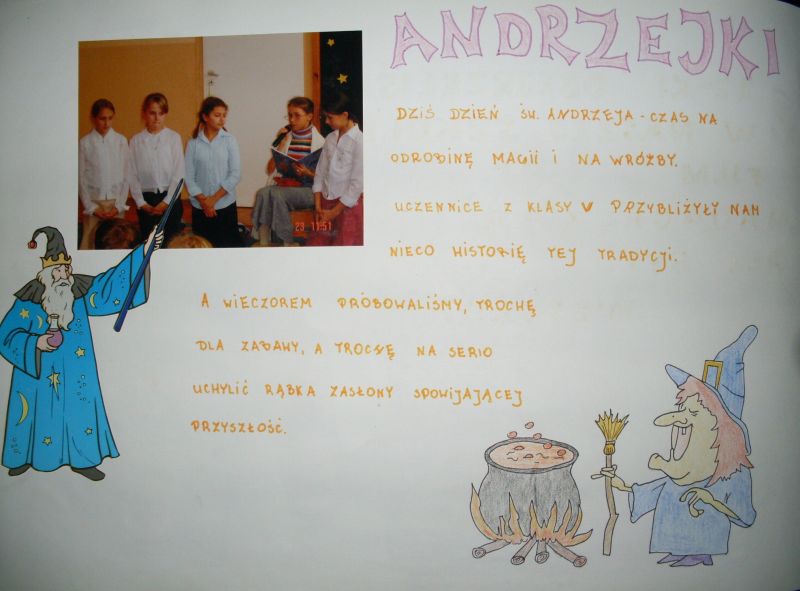 ANDRZEJKI
DZIŚ DZIEŃ ŚW. ANDRZEJA - CZAS NA
ODROBINĘ MAGII I NA WRÓŻBY.
UCZENNICE Z KLASY V PRZYBLIŻYŁY NAM
NIECO HISTORIĘ TEJ TRADYCJI.
A WIECZOREM PRÓBOWALIŚMY, TROCHĘ
DLA ZABAWY, A TROCHĘ NA SERIO
UCHYLIĆ RĄBKA ZASŁONY SPOWIJAJĄCEJ
PRZYSZŁOŚĆ.
29 11:51